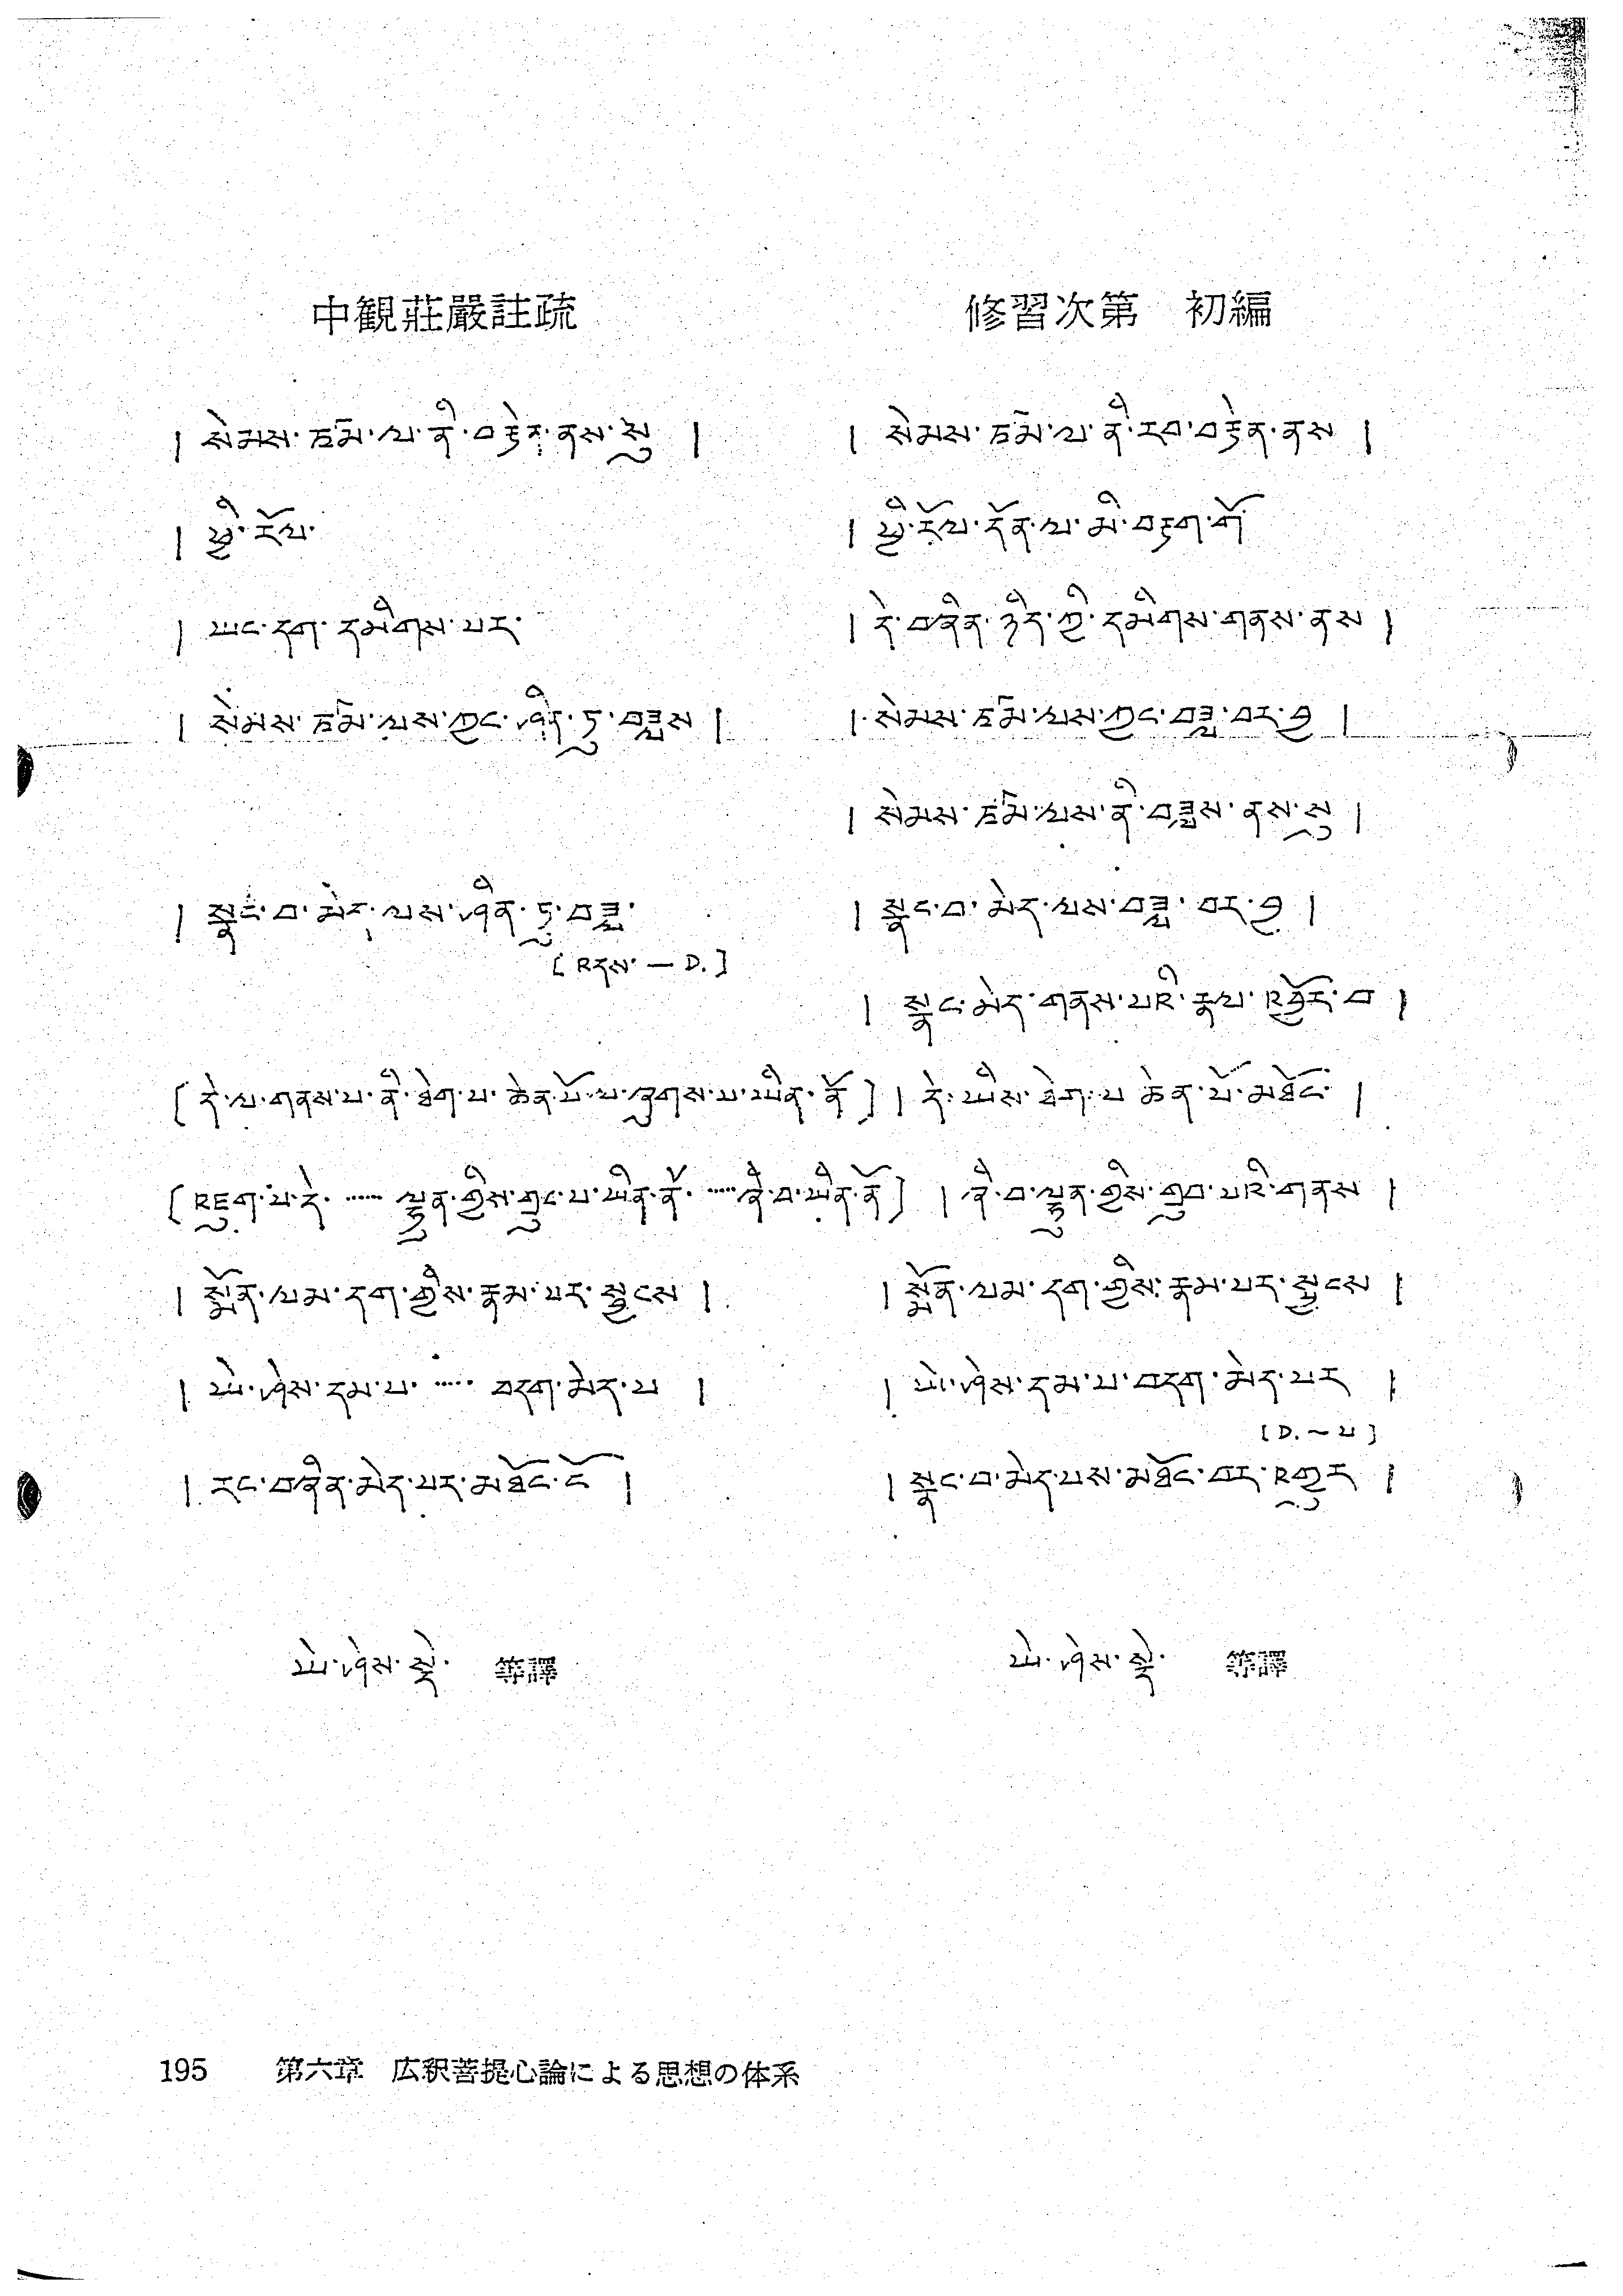 中観荘嚴註疏
修習次第　初編
། སེམས་ཙམ་ལ་ནི་བརྟེན་ནས་སུ །
། སེམས་ཙམ་ལ་ནི་རབ་བརྟེན་ནས །
། ཕྱི་རོལ་
། ཕྱི་རོལ་དོན་ལ་མི་བརྟག་གོ
། ཡང་དག་དམིགས་པར་
། དེ་བཞིན་ཉིད་ཀྱི་དམིགས་གནས་ནས །
། སེམས་ཙམ་ལས་ཀྱང་ཤིན་ཏུ་བཟླས །
། སེམས་ཙམ་ལས་ཀྱང་བཟླ་བར་བྱ །
། སེམས་ཙམ་ལས་ནི་བཟླས་ནས་སུ །
། སྣང་བ་མེད་ལས་ཤིན་ཏུ་བཟླ་
[འདས་ — D.]
། སྣང་བ་མེད་ལས་བཟླ་བར་བྱ །
། སྣང་མེད་གནས་པའི་རྣལ་འབྱོར་བ །
[དེ་ལ་གནས་པ་ནི་ཐེག་པ་ཆེན་པོ་ལ་ཞུགས་པ་ཡིན་ནོ]
། དེ་ཡིས་ཐེག་པ་ཆེན་པོ་མཐོང་ །
[འཇུག་པ་དེ་ ······ ལྷུན་གྱིས་གྲུབ་པ་ཡིན་ནོ་ ······ ཞི་བ་ཡིན་ནོ]
། ཞི་བ་ལྷུན་གྱིས་གྲུབ་པའི་གནས །
། སྨོན་ལམ་དག་གྱིས་རྣམ་པར་སྦྱངས །
། སྨོན་ལམ་དག་གྱིས་རྣམ་པར་སྦྱངས །
། ཡེ་ཤེས་དམ་པ་ ······ བདག་མེད་པ །
། ཡེ་ཤེས་དམ་པ་བདག་མེད་པར །
[D. ~ པ]
། རང་བཞིན་མེད་པར་མཐོང་ངོ །
། སྣང་བ་མེད་པས་མཐོང་བར་འགྱུར །
ཡེ་ཤེས་སྡེ་　等譯
ཡེ་ཤེས་སྡེ་　等譯
195　第六章　広釈菩提心論による思想の体系